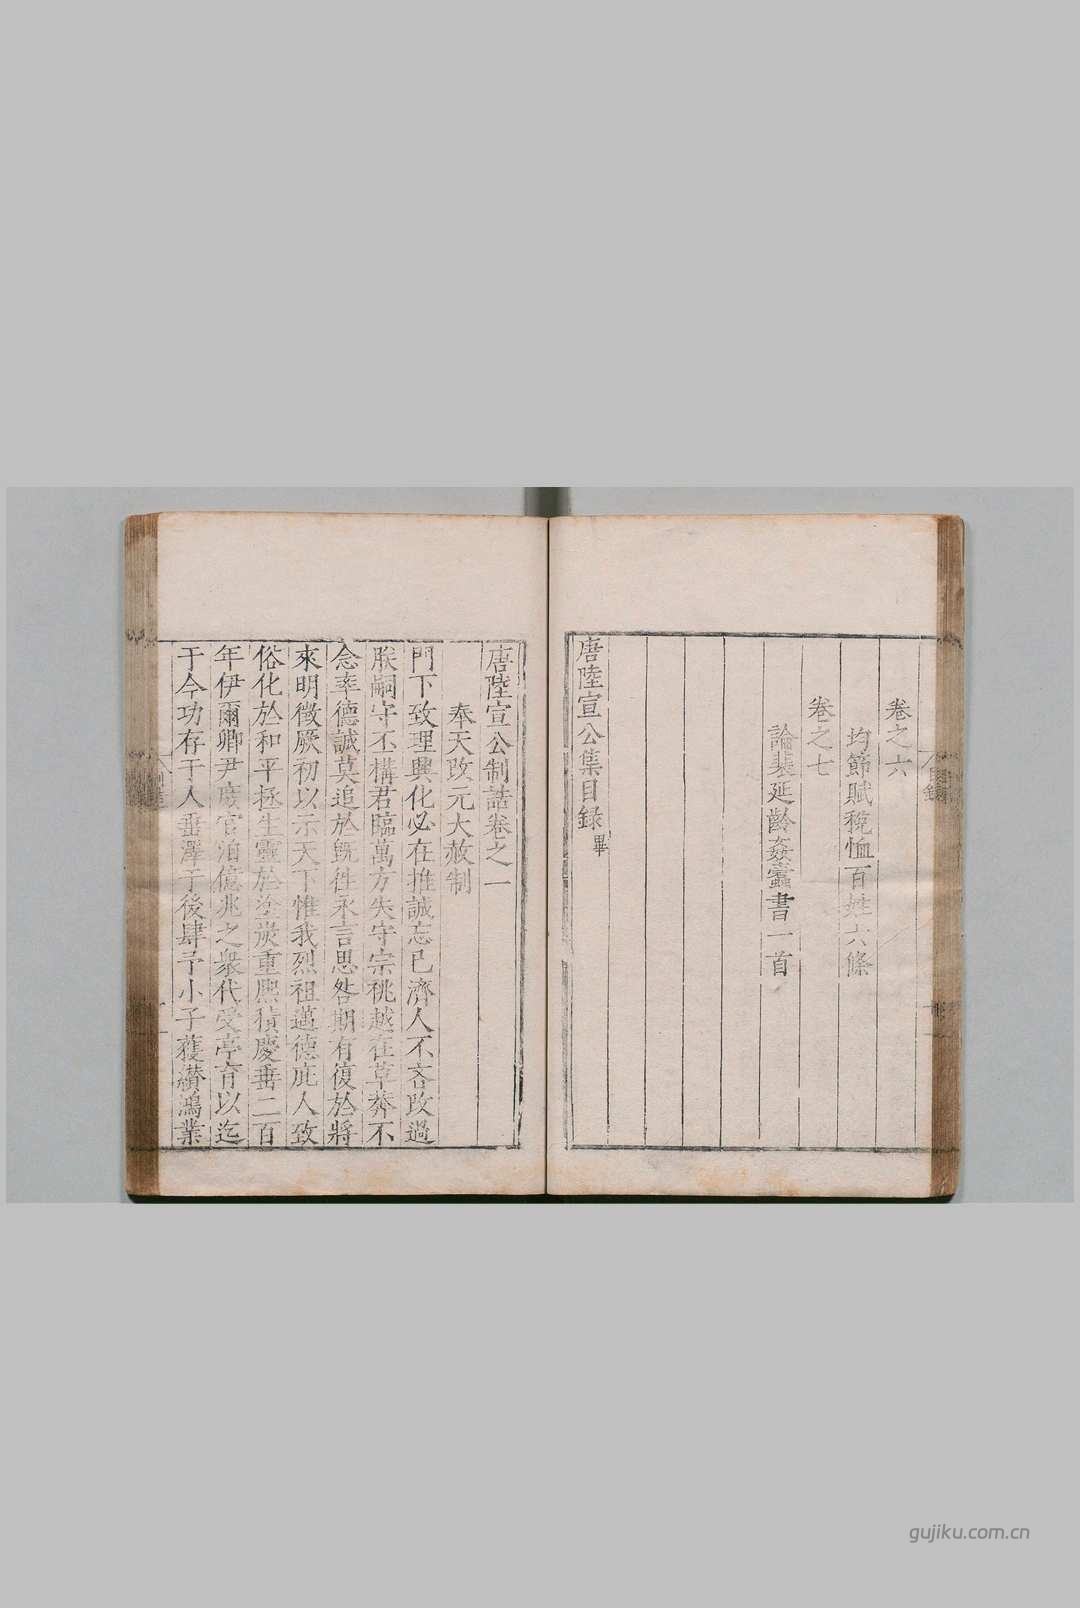 卷之六
均節賦稅恤百姓六條
卷之七
論裴延齡姦蠹書一首
唐陸宣公集目録畢
唐陸宣公制誥卷之一
奉天改元大赦制
門下致理興化必在推誠忘已濟人不吝改過
朕嗣守丕構君臨萬方失守宗祧越在草莽不
念率德誠莫追於旣徃永言思咎期有復於將
來明徵厥初以示天下惟我烈祖邁德庇人致
俗化於和平拯生靈於塗炭重熈積慶垂二百
年伊爾卿尹庶官洎億兆之衆代受亭育以迄
于今功存于人垂澤于後肆予小子獲纘鴻業
gujiku.com.cn